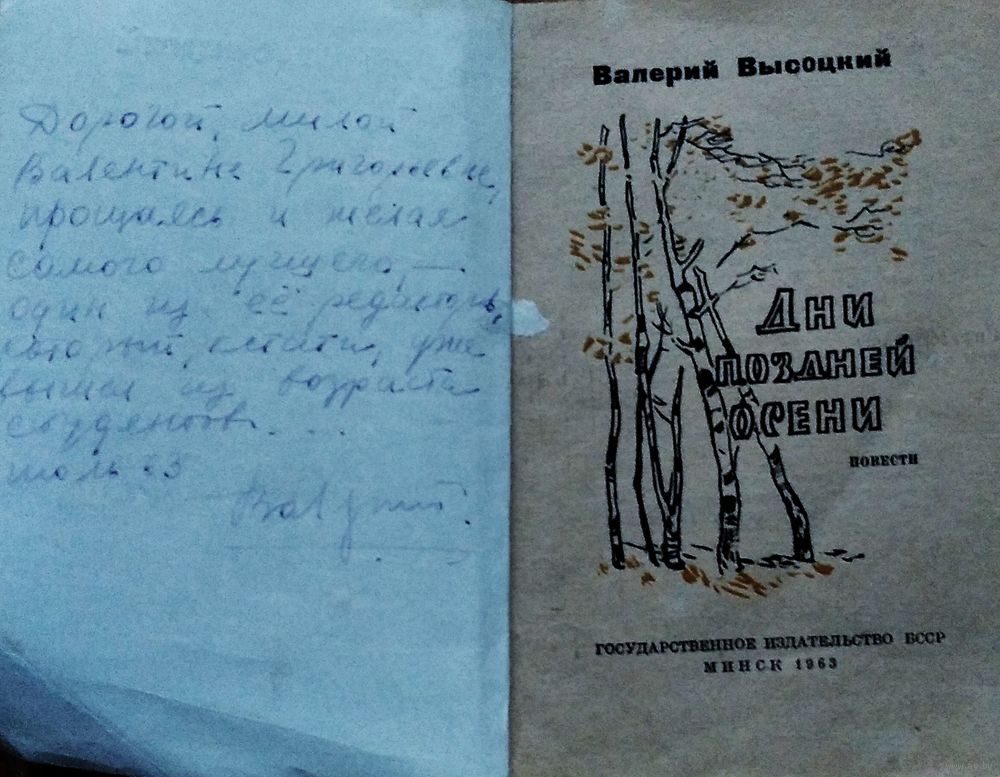 Дорогой, милой
Валентине Григорьевне,
прощаясь и желая
самого лучшего, —
один из её редакторов,
кстати, уже
вышел из возраста
студентов...
июль 63
Валерий Высоцкий
ДНИ
ПОЗДНЕЙ
ОСЕНИ
ПОВЕСТИ
ГОСУДАРСТВЕННОЕ ИЗДАТЕЛЬСТВО БССР
МИНСК 1963